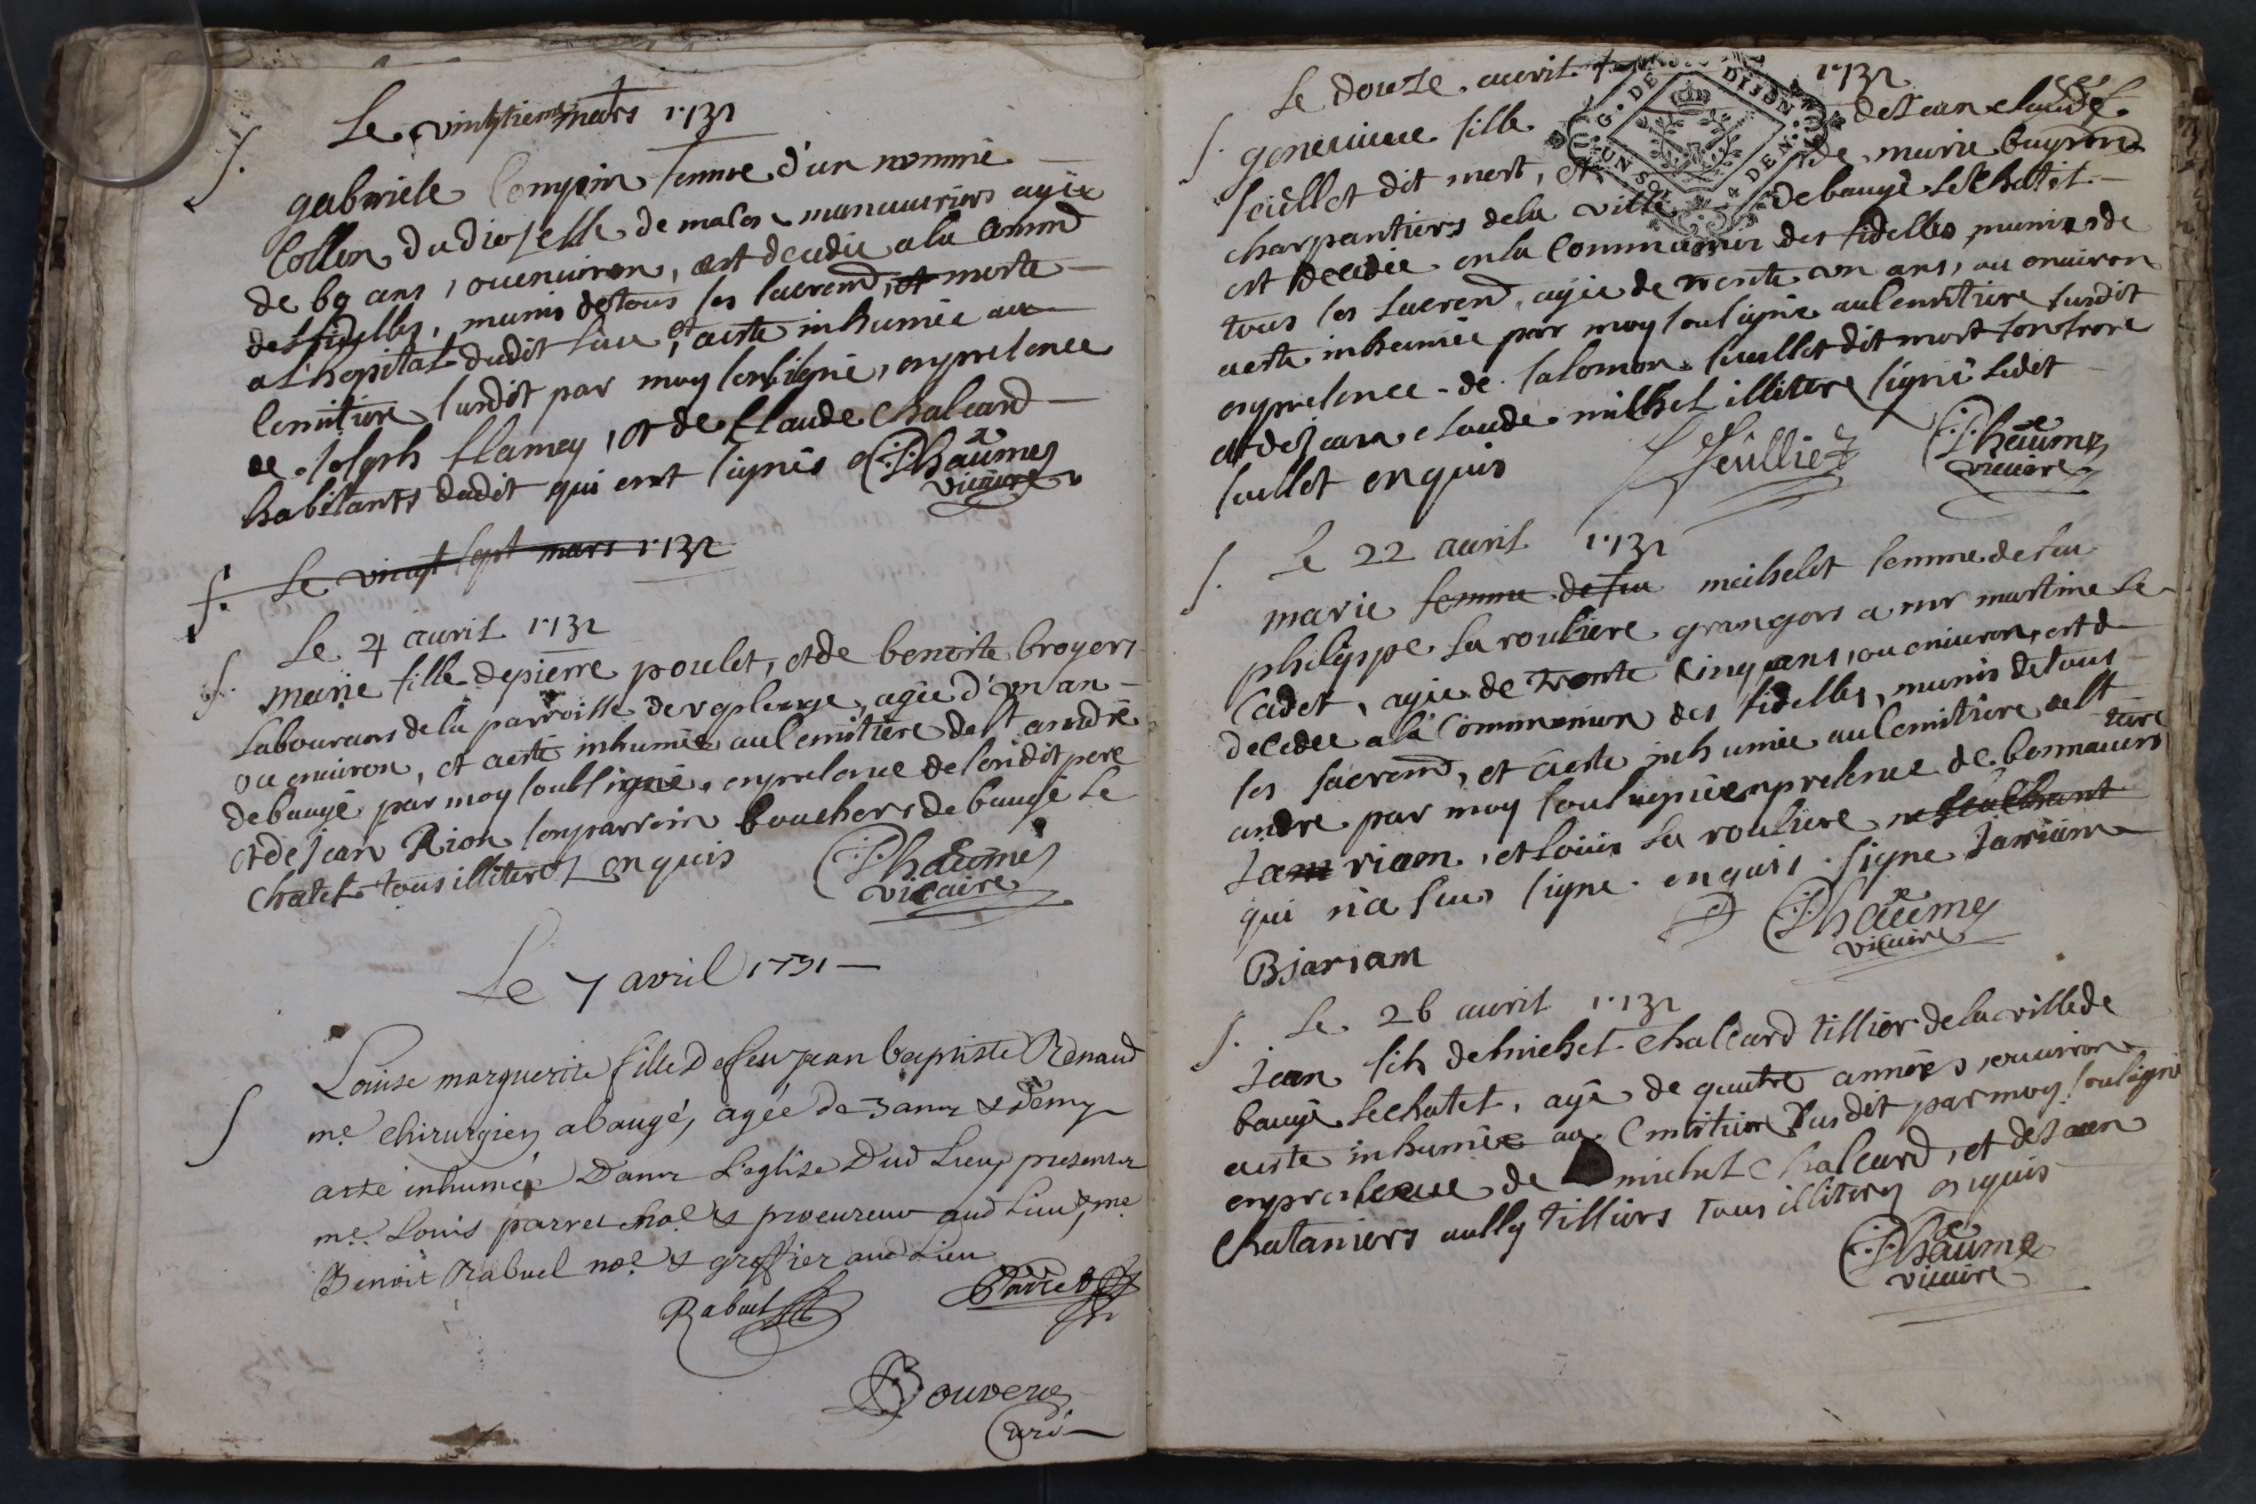 Le vingtiem mars 1731
S. gabriele Compin femme d'un nommé
Collin du dioselle de macon manouvriers agée
de 69 ans, ou environ, est decedée a la comm̄
des fidelles, munis de tous les sacrem̄, et morte
a l'hopital dudit lieu, et aeste inhumée au
cemitiere susdit par moy soubsigné, en presence
de Joseph flamey, et de Claude chaleard
habitants dudit qui ont signés Pheaume
vicaire
S. Le vingt sept mars 1731
Le 4 avril 1731
S. marie fille de pierre poulet, et de benoite broyers
laboureurs de la parroisse de agée d'un an
ou environ, et aesté inhumée au cemitiere de st andré
de baugé par moy soubsigné, en presence de son dit pere
et de jean Rion son parrein bouchers de baugé le
chatel tous illiteres enquis Pheaume
vicaire
Le 7 avril 1731
S Louise marguerite fille De feu jean baptiste Renaud
me. chirurgien a baugé, agée de 3 ans & Demy
aeté inhumée Dans L'eglise Dud Lieu presents
me. Louis parret & procureur aud Lieu, & me.
Benoit Rabuel no.e & greffier aud Lieu
Rabuel Parret
Bouveret
curé
Le douze avril 1731
S. genevieve fille de Jean claude
feullet dit mort, et de marie buyrond
charpantiers de la ville de baugé le chatel
est decedée en la communion des fidelles munies de
tous les sacrem̄, agée de trente un ans, ou environ
aeste inhumée par moy soulsigné au cemitiere susdit
en presence de salomon feuillet dit mort son frere
et de Jean claude milhet illitere signé ledit
feullet enquis J Feüllet Pheaume
vicaire
S. Le 22 avril 1731
marie femme de feu michelet femme de feu
philippe la rouliere grangers a mr martine le
cadet, agée de trente cinq ans, ou environ, est de
decedée a la communion des fidelles, munis de tous
les sacrem̄, et aeste inhumée au cemitiere de st
andre par moy soulsigné en presence de bonnaventure
Jam riam, et louis la rouliere
qui n'a sceu signe enquis signe Jarriam
Pheaume
vicaire
BJariam
S. Le 26 avril 1731
Jean fils de michel chaleard tillier de la ville de
baugé le chatel, agé de quatre années, environ
aeste inhumée au cemitiere susdit par moy soulsigné
en presence de michel chaleard, et de Jean
chataniers aussy tilliers tous illiteres enquis
Pheaume
vicaire
G. DE DIJON
UN SOL 4 DEN.